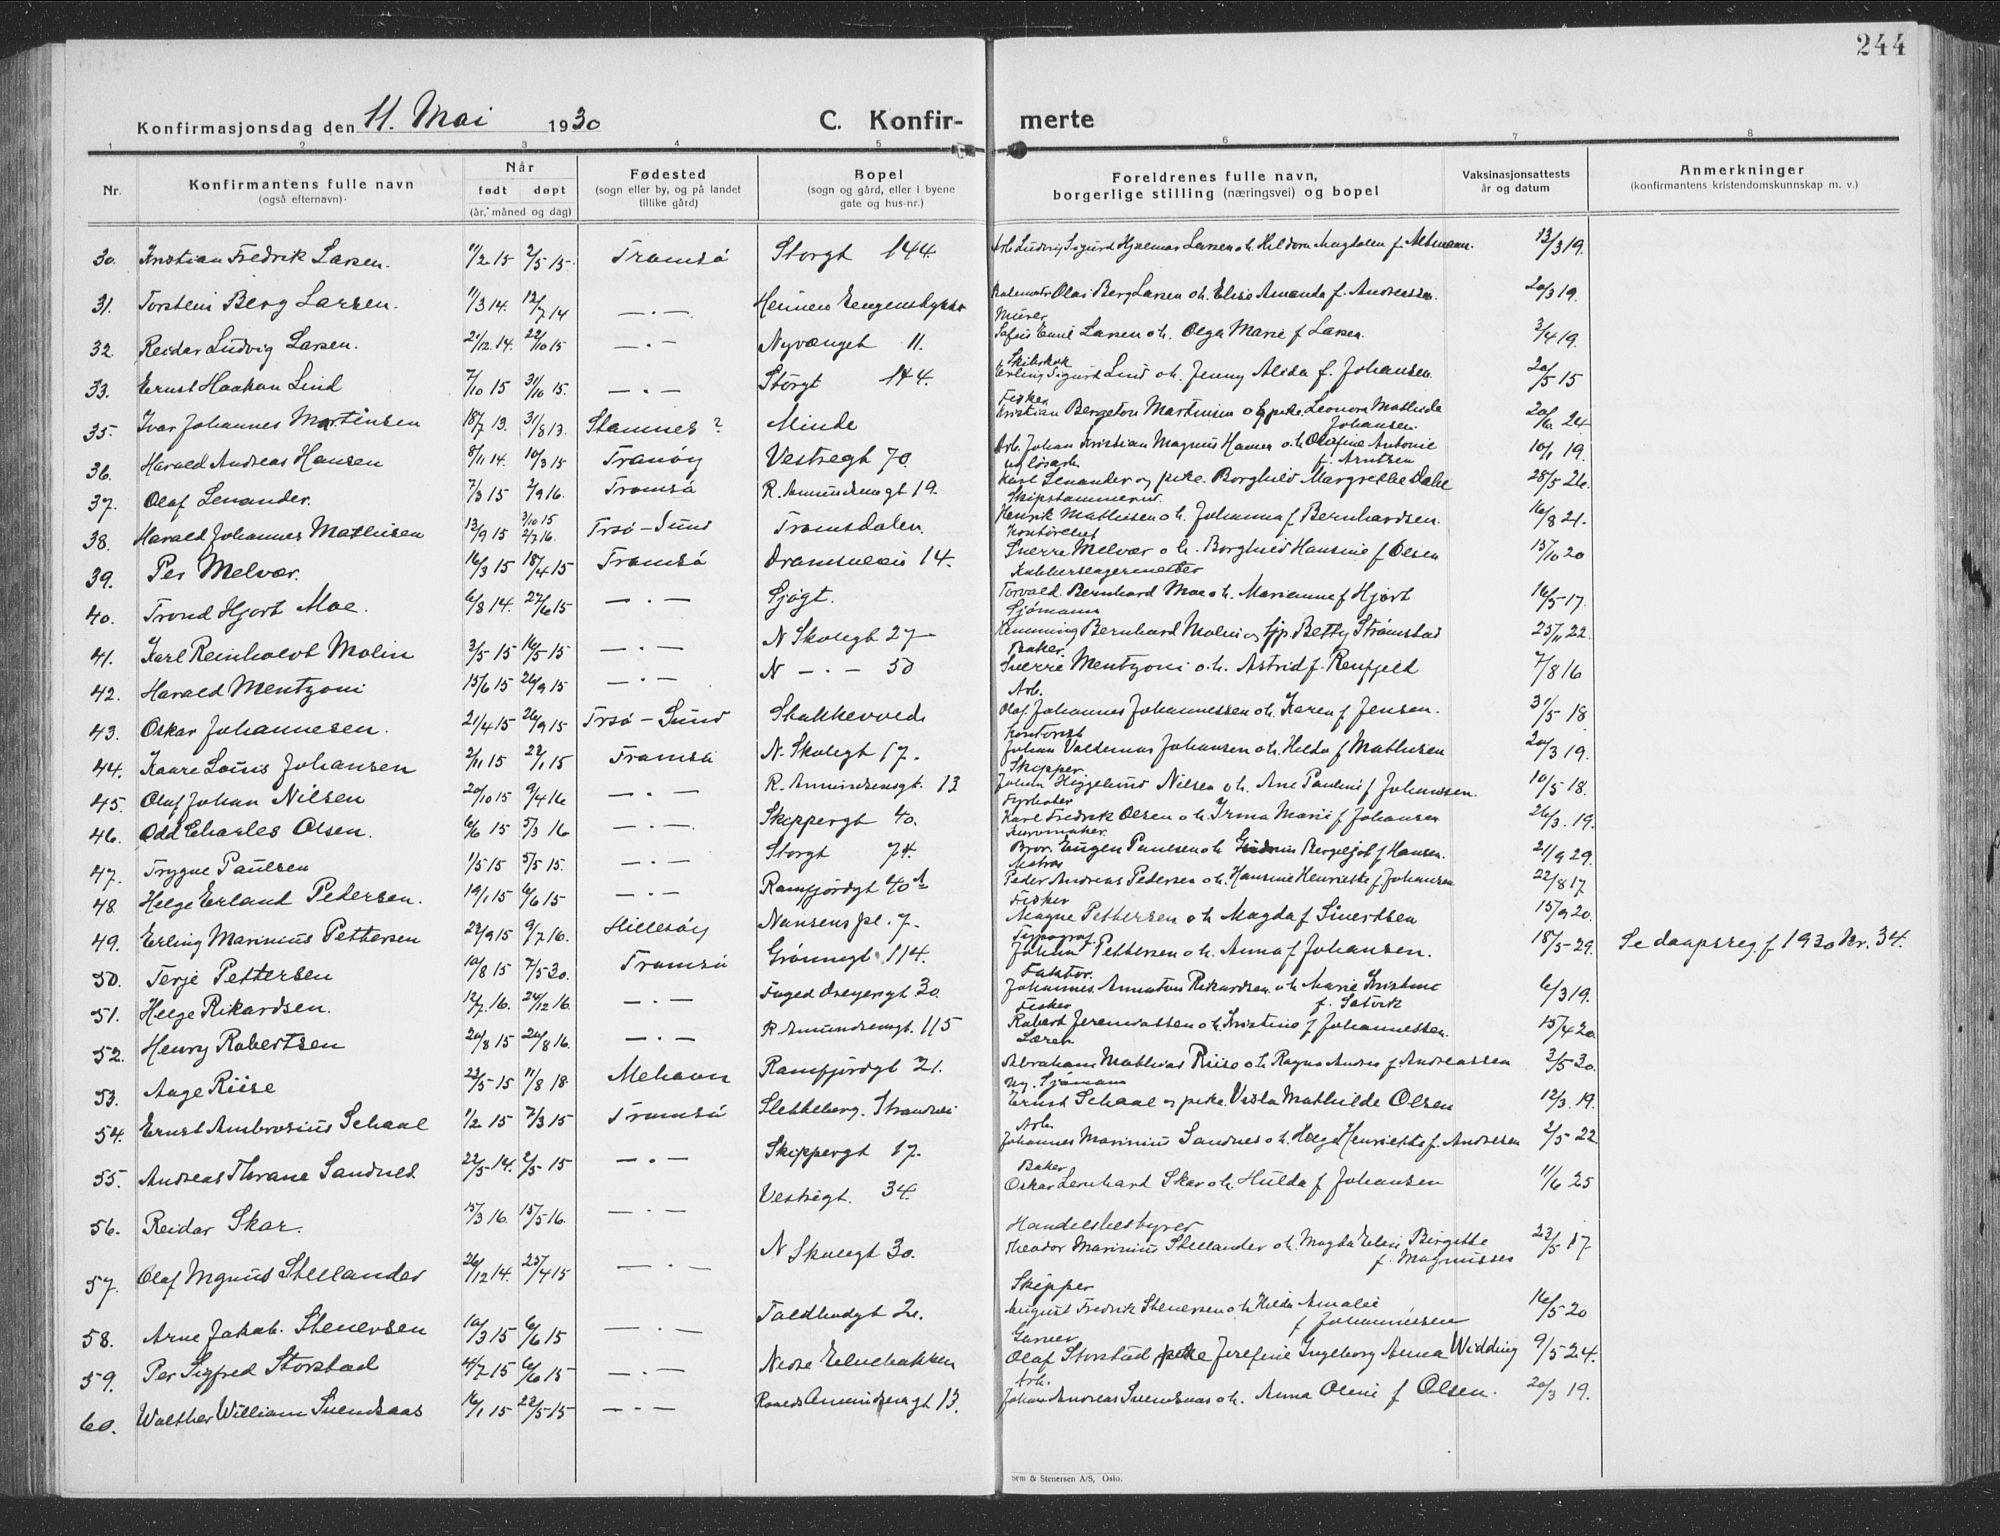 244
Konfirmasjonsdag den 11. Mai 1930 C. Konfir- merte
1 2 3 4 5 6 7 8
Nr. Konfirmantens fulle navn (også efternavn) Når født døpt (år, måned og dag) Fødested (sogn eller by, og på landet tillike gård) Bopel (sogn og gård, eller i byene gate og hus-nr.) Foreldrenes fulle navn, borgerlige stilling (næringsvei) og bopel Vaksinasjonsattests år og datum Anmerkninger (konfirmantens kristendomskunnskap m. v.)
30. Kristian Fredrik Larsen. 11/2 15 2/5 15. Tromsø Storgt 144. Arb. Ludvig Sigurd Hjalmar Larsen o.h. Magdalen f. 13/3 19.
31. Torstein Berg Larsen. 11/3 14. 12/7 14 — . — Olai Berg Larsen o.h. Elise Amanda f. Andreassen. 20/3 19.
Murer
32. Reidar Ludvig Larsen. 21/12 14. 22/10 15 — . — Nyvænget 11. Sofus Emil Larsen o.h. Olga Marie f. Larsen. 3/4 19.
Skibskok
33. Ernst Haakon Lind 7/10 15 31/10 15. — . — Storgt 144. Erling Sigurd Lind o.h. Jenny Alida f. Johansen. 20/5 15
Fisker
35. Ivar Johannes Martinsen 18/7 13. 31/8 13. Stamnes ? Minde Kristian Bergeton Martinsen og pike Leonora Mathilda Johansen. 20/6 24
36. Harald Andreas Hansen 8/11 14. 10/3 15 Tranøy Vestregt 70. Arb. Johan Kristian Magnus Hansen o.h. Olafine Antonie f. Arntsen 10/1 19.
37. Olaf Lenander. 7/3 15 2/9 16. Tromsø R. Amundsensgt 19. Karl Lenander og pike. Borghild Margrethe Dahl 28/5 26.
Skipstømmermd.
38. Harald Johannes Mathisen 13/9 15 3/10 15 2/7 16. Trsø-Sund Tromsdalen. Henrik Mathisen o.h. Johanna f. Bernhardsen. 16/8 21.
Kontorchef
39. Per Melvær. 16/3 15 18/4 15 Tromsø Dramsveien 14. Sverre Melvær o.h. Borghild Hansine f. Olsen 15/10 20
Kobberslagermester
40. Trond Hjort Moe. 6/8 14. 27/6 15 — . — Sjøgt. Torvald Bernhard Moe o.h. Marianne f. Hjort 16/5 17.
Sjømann
41. Karl Reinholdt Molin 3/5 15 16/5 15 — . — N Skolegt 27 Bernhard Molin og Betty Strømstad 25/11 22.
Baker
42. Harald Mentzoni 15/6 15 26/9 15 — . — N — . — 50 Sverre Mentzoni o.h. Astrid f. Renfjeld 7/8 16
Arb.
43. Oskar Johannesen. 21/4 15 26/9 15 Trsø-Sund Olaf Johannes Johannessen o.h. Karen f. Jensen. 31/5 18
Kontorist
44. Kaare Louis Johansen 2/11 15 22/1 15 Tromsø N. Skolegt 17. Johan Valdemar Johansen o.h. Hilda f. Mathisen 20/3 19.
Skipper
45. Olaf Johan Nilsen 20/10 15 9/4 16 — . — R. Amundsensgt. 13 Johan Figgelund Nilsen o.h. Ane Pauline f. Johanssen. 10/5 18.
Fyrbøter
46. Odd Charles Olsen. 6/6 15 5/3 16 — . — Skippergt 40. Karl Fredrik Olsen o.h. Irma Marie f. Johansen 26/3. 19.
Kurvmaker.
47. Trygve Paulsen 1/5 15 5/5 15. — . — Storgt 74. Eugen Paulsen o.h. Bergljot f. Hansen. 21/9 29.
Matros
48. Helge Erland Pedersen. 19/1 15 6/6 15 — . — Ramfjordgt 40 A Peder Andreas Pedersen o.h. Hansine Henriette f. Johansen 22/8 17
Fisker
49. Erling Marinius Pettersen 22/9 15 9/7 16. Hillesøy Nansens pl. 7. Magne Pettersen o.h. Magda f. Sivertsen 15/9 20.
Typograf
50. Terje Pettersen 10/8 15 7/5 30. Tromsø Grønnegt 114. Pettersen o.h. Anna f. Johansen. 18/5 29. Se daapsreg f 1930 Nr. 34.
Faktor.
51. Helge Rikardsen. 12/7 16. 24/12 16. — . — 30. Johannes Annaton Rikardsen o.h. Marie Kristine f. Satvik 6/3 19.
Fisker
52. Henry Robertsen 20/8 15 20/8 16. — . — R Amundsensgt. 115 Robert o.h. Kristine f. Johannessen. 15/4 20.
Lærer
53. Aage Riise 23/5 15 11/8 18. Mehavn Ramfjordgt 21. Abraham Mathias Riise o.h. Ragna f. Andreassen 3/5 30.
Sjømann
54. Ernst Ambrosius Schaal 1/2 15 7/3 15 Tromsø Slettaberg. Strandvei Ernst Schaal og pike. Mathilde Olsen 12/3. 19.
Arb.
55. Andreas Thrane Sandnes 22/5 14. 2/5 15 — . — Skippergt 17. Johannes Marinius Sandnes o.h. Helga Henriette f. Andresen 2/5 22
Baker
56. Reidar Skar. 15/3 16. 15/5 16. — . — Vestregt. 34. Oskar Lernhard Skar o.h. Hulda f. Johansen 11/6 25
Handelsbestyrer
57. Olaf Stellander 26/12 14. 25/4 15 — . — N Skolegt 30. Theodor Marinius Stellander o.h. Magda Birgitte f. Magnussen 23/5 17
Skipper
58. Arne Jakob. Stenersen 10/3 15 6/6 15 — . — 2. August Fredrik Stenersen o.h. Hilda Amalie f. Johannesen 16/5 20
Garver
59. Per Sigfred Storstad 4/7 15 6/6 15 — . — Nedre Elvebakken Olaf Storstad pike Josefine Ingeborg Anna Widding 9/5 24.
Arb.
60. Walther William Svendsaas 16/1 15 22/5 15 — . — Roald Amundsensgt 13. Johan Andreas Svendsaas o.h. Anna Oline f. Olsen. 20/3 19.
Sem & Stenersen A/S, Oslo.